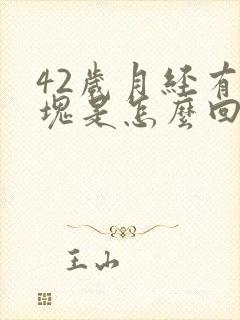 42歲月經有
塊是怎麼回
王山